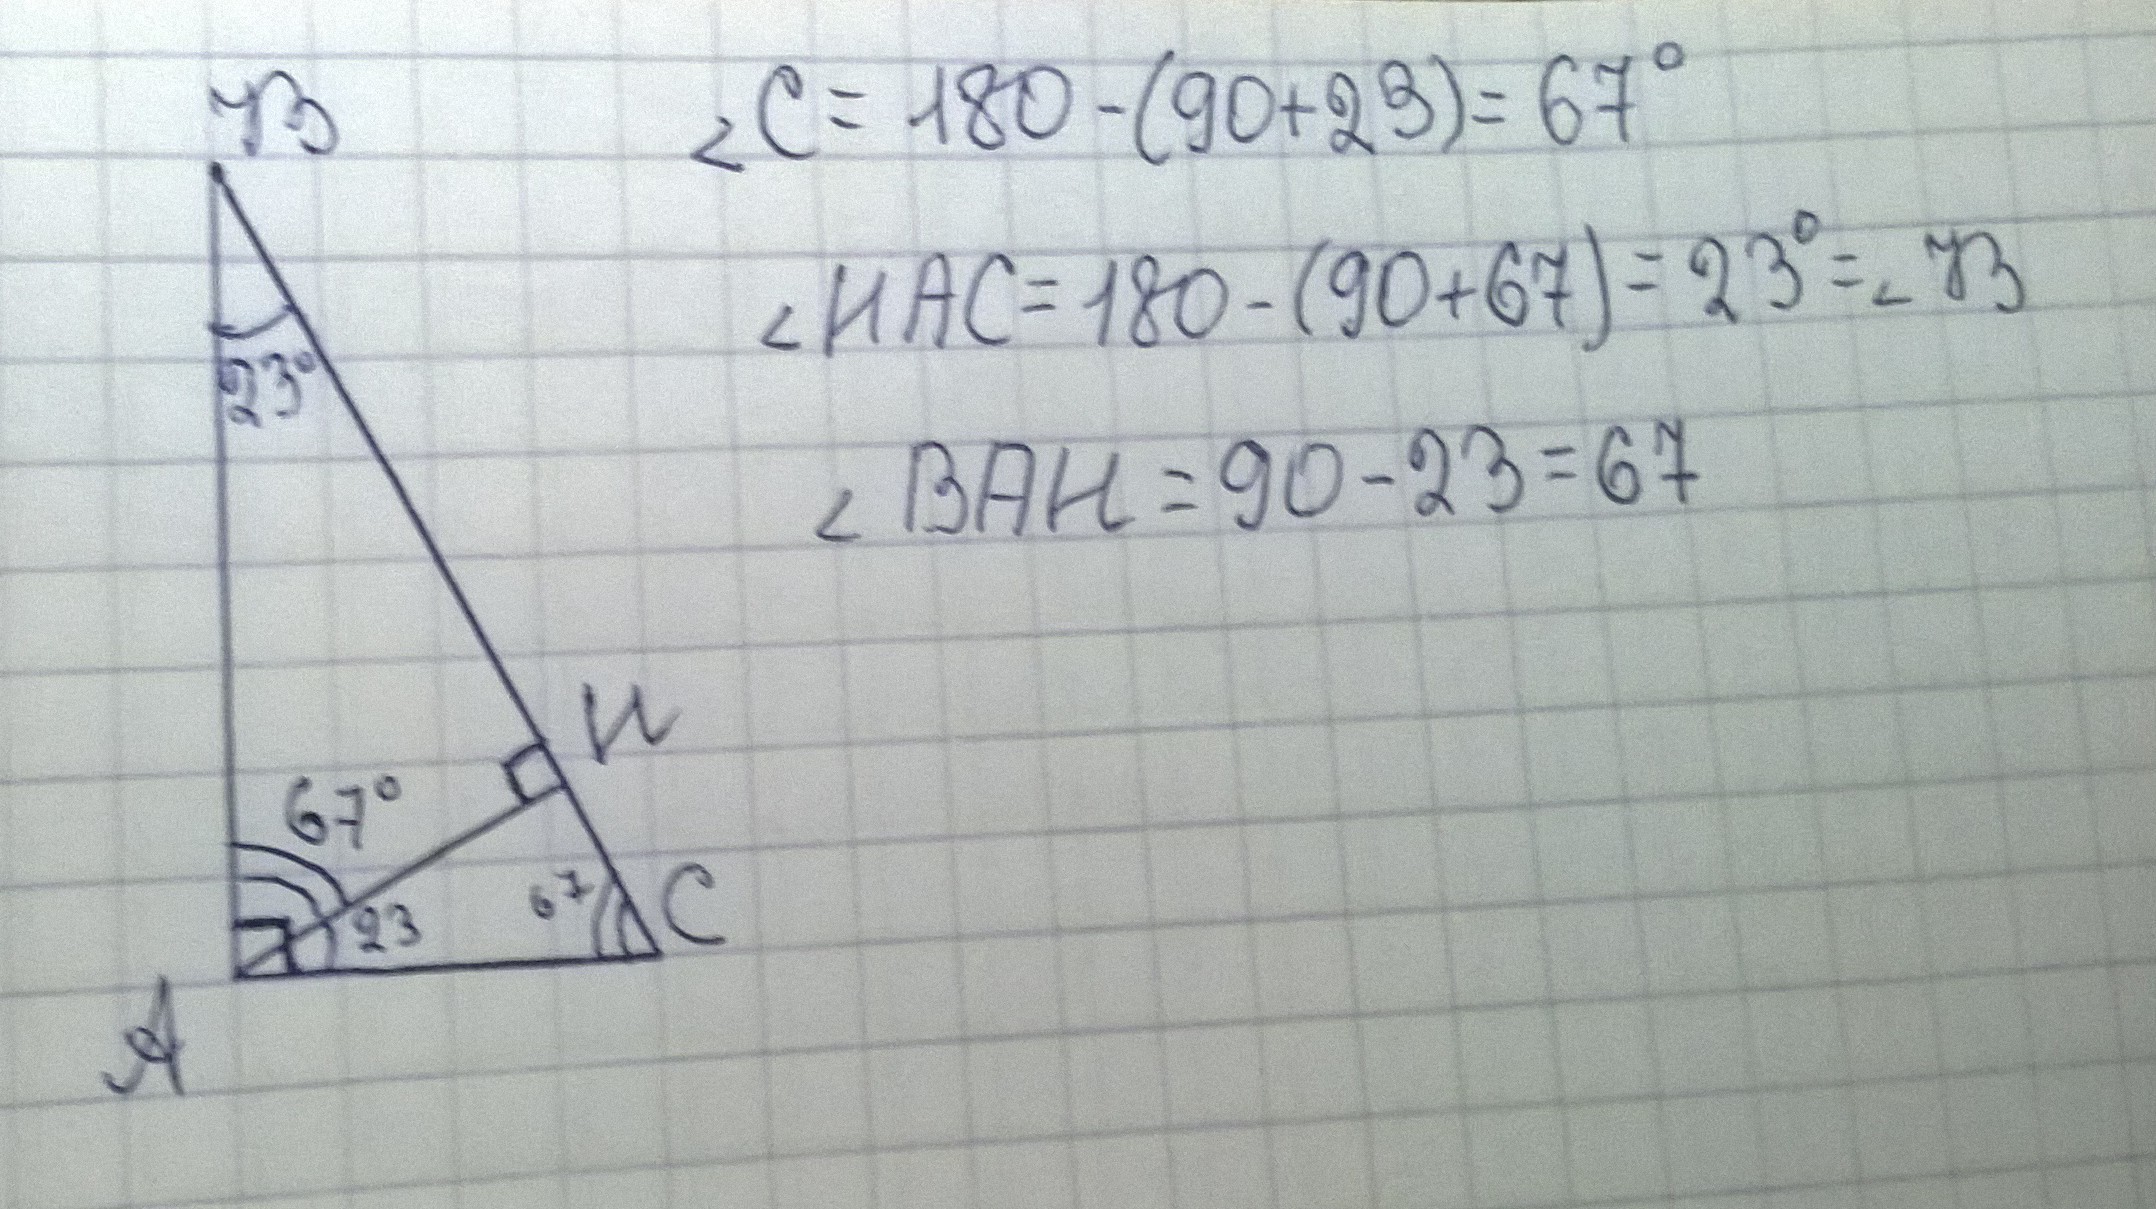 B
∠C = 180 - (90+23) = 67°
∠HAC = 180 - (90+67) = 23° = ∠B
23°
∠BAH = 90 - 23 = 67
H
67°
67
C
23
A